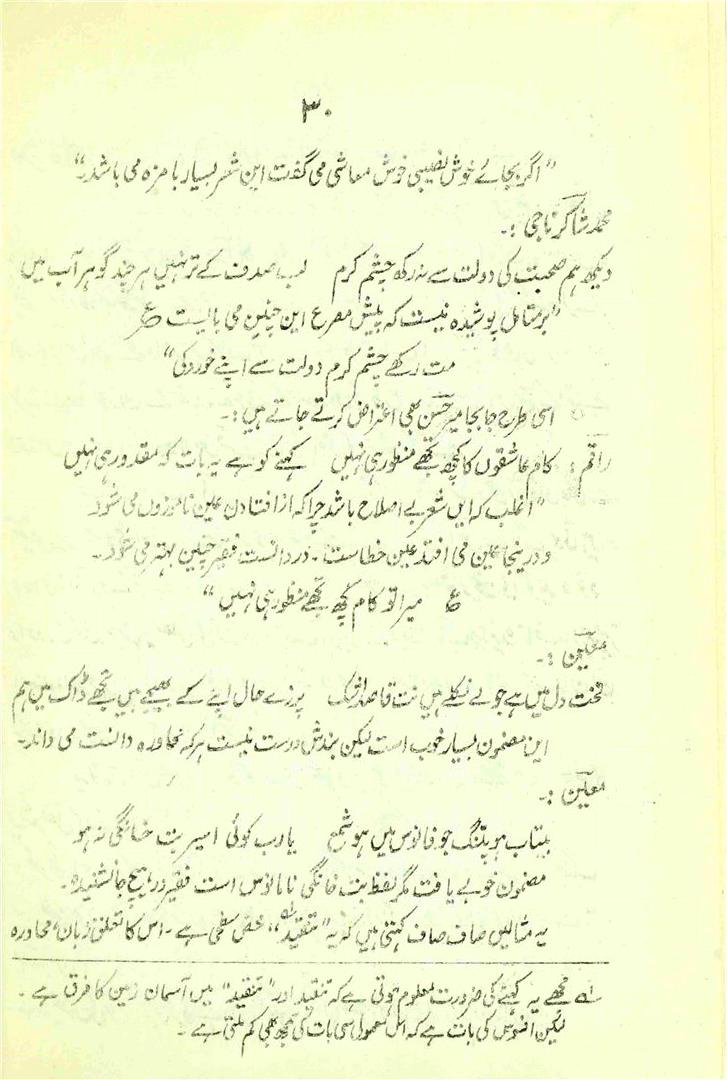 ۳۰
"اگر بجائے خوش نصیبی خوش معاشی می گفت این شعر بسیار بامزہ می باشد۔"
محمد شاکر ناجی :۔
دیکھ ہم صحبت کی دولت سے نہ رکھ چشم کرم لب صدف کے تر نہیں ہرچند گوہر آب میں
"بر متامل پوشیدہ نیست کہ پیش مصرع این چنین می بایست ع
مت رکھے چشم کرم دولت سے اپنے خورد کی"
اسی طرح جابجا میر حسن بھی اعتراض کرتے جاتے ہیں :۔
راقم : کام عاشقوں کا کچھ تجھے منظور ہی نہیں کہنے کو ہے یہ بات کہ مقدور ہی نہیں
"اغلب کہ ایں شعر بے اصلاح باشد چرا کہ از افتادن عین ناموزوں می شود
و در ینجا عین می افتد عین خطاست۔ در دانست فقیر چنین بہتر می شود۔
ع میرا تو کام کچھ تجھے منظور ہی نہیں"
معین :۔
لخت دل میں ہے جو لے نکلے ہیں نت قاصد اشک پرزے حال اپنے کے بھیجے ہیں تجھے ڈاک میں ہم
این مضمون بسیار خوب است لیکن بندش درست نیست ہر کہ محاورہ دانست می داند۔
معین :۔
بیتاب ہو پتنگ جو فانوس میں ہو شمع یارب کوئی اسیر بت خانگی نہ ہو
مضمون خوبے یافت مگر لفظ بت خانگی نامانوس است فقیر در ہیچ جا نشنیدہ۔
یہ مثالیں صاف صاف کہتی ہیں کہ یہ "تنقید" لہ محض سطحی ہے۔ اس کا تعلق زبان، محاورہ
لہ مجھے یہ کہنے کی ضرورت معلوم ہوتی ہے کہ تنقید اور "تنقید" میں آسمان زمین کا فرق ہے۔
لیکن افسوس کی بات ہے کہ اس معمولی سی بات کی سمجھ بھی کم ملتی ہے۔